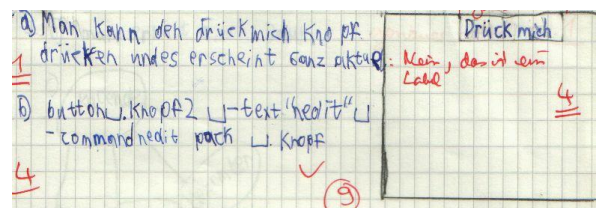 a) Man kann den drückmich Knopf
drücken und es erscheint ganz aktuell:
b) button␣.Knopf2 ␣-text"nedit"␣
-command nedit pack ␣.Knopf
Drück mich
Nein, das ist ein
Label
1
4
4
9